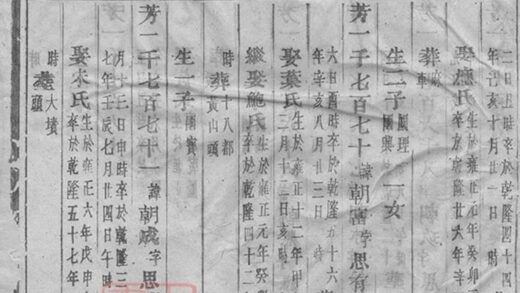 二日丑時卒於乾隆四十四
年己亥十月廿一日時
娶應氏生於雍正元年癸卯
卒於乾隆廿六年辛
葬麻車
生二子國理國興一女
芳一千七百七十諱朝富字思有
六日酉時卒於乾隆五十六
年辛亥八月廿三日時
娶葉氏生於雍正十二年甲
三月十三日亥時
繼娶鮑氏生於雍正元年癸
卒於乾隆四十二
時葬十八都黃山頭
生一子國賢
芳一千七百七十一諱朝成字思
月十三日申時卒於乾隆三
七年壬辰七月四日午時
娶朱氏生於雍正六年戊申
卒於乾隆五十七年
時葬大墳頭